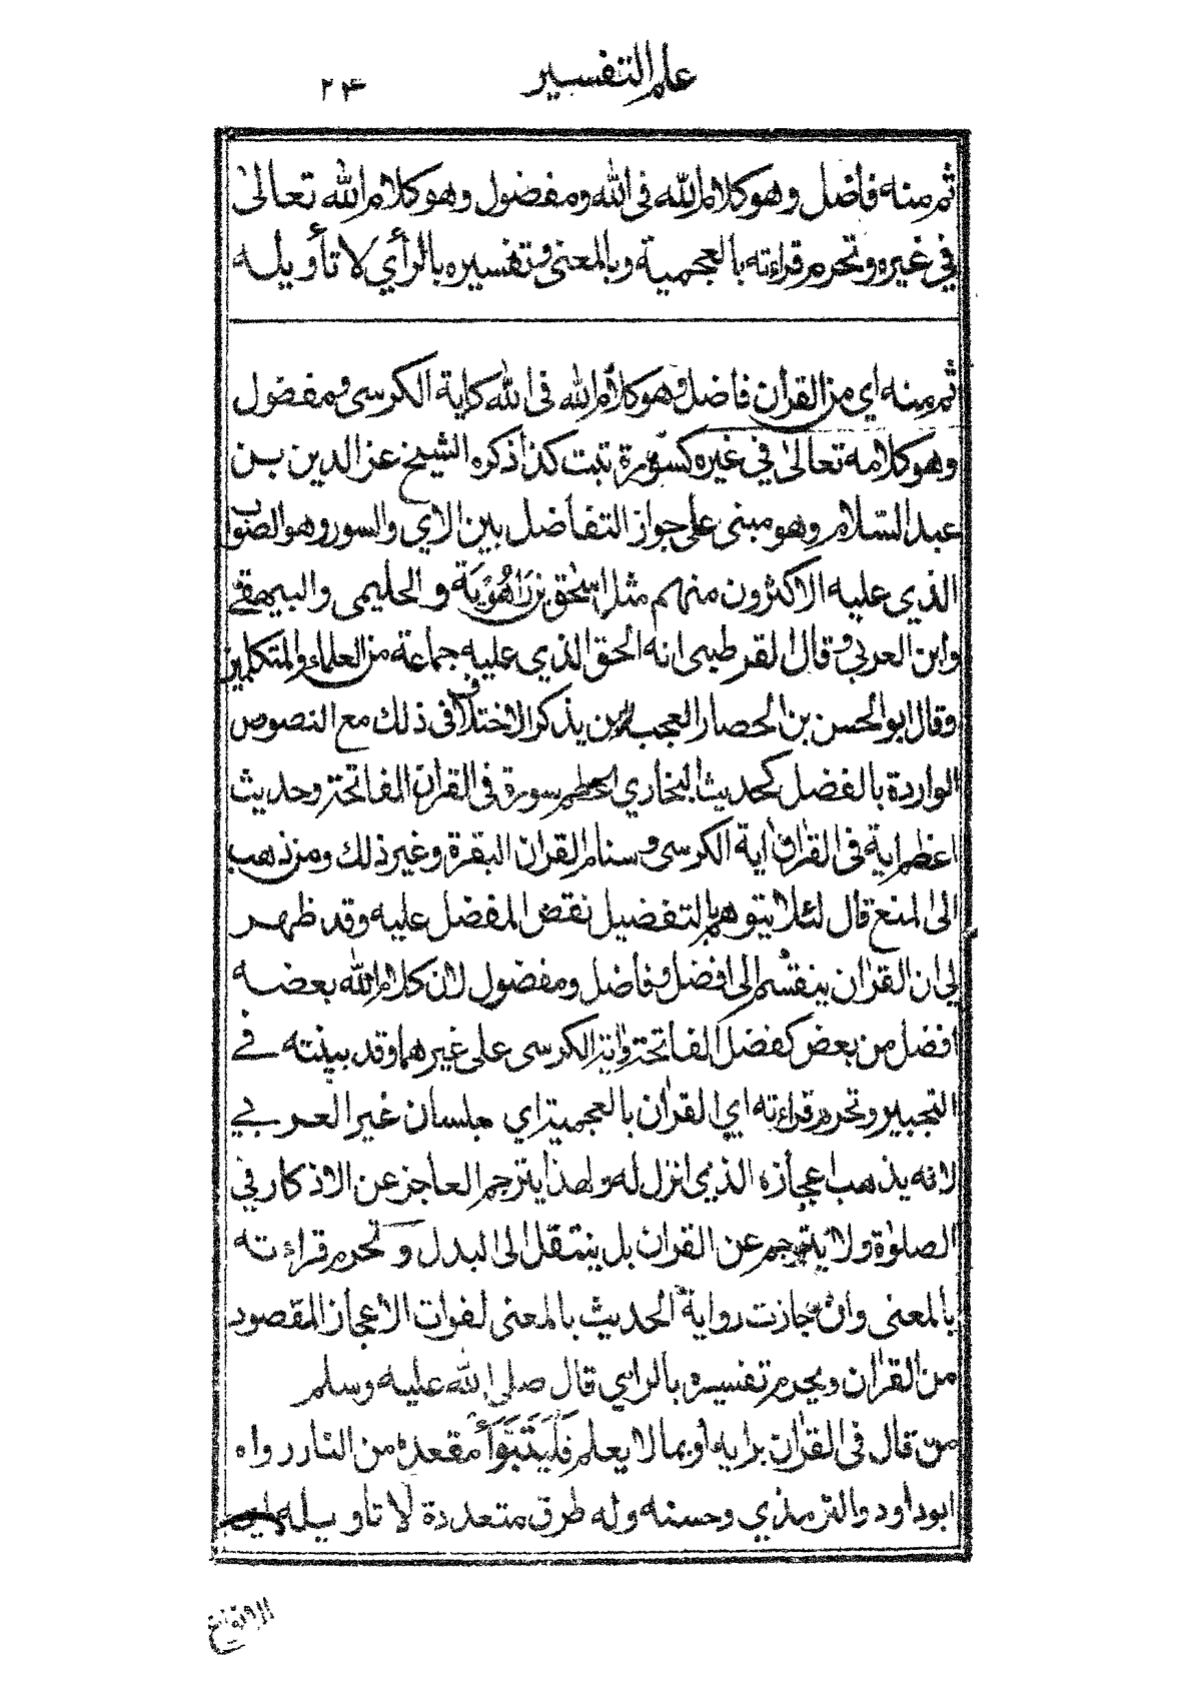 علم التفسير
٢٤
ثم منه فاضل وهو كلام الله فى الله ومفضول وهو كلام الله تعالىٰ
في غيره وتحرم قراءته بالعجمية وبالمعنى وتفسيره بالرأي لا تأويله
ثم منه اي من القران فاضل وهو كلام الله فى الله كاية الكرسى ومفضول
وهو كلامه تعالىٰ في غيره كسورة تبت كذا ذكره الشيخ عز الدين بن
عبد السّلام وهو مبنى على جواز التفاضل بين الاي والسور وهو الصواب
الذي عليه الاكثرون منهم مثل اسحٰق بن رَاهُوْيَة والحليمى والبيهقي
وابن العربي وقال القرطبى انه الحق الذي عليه جماعة من العلماء والمتكلمين
وقال ابو الحسن بن الحصار العجب ممن يذكر الاختلاف فى ذلك مع النصوص
الواردة بالفضل كحديث البخاري اعظم سورة فى القران الفاتحة وحديث
اعظم اية فى القراٰن اية الكرسى وسنام القران البقرة وغير ذلك ومن ذهب
الى المنع قال لئلا يتوهم بالتفضيل نقض المفضل عليه وقد ظهر
لي ان القراٰن ينقسم الى افضل وفاضل ومفضول لان كلام الله بعضه
افضل من بعض كفضل الفاتحة واٰية الكرسى على غيرهما وقد بينته في
التحبير وتحرم قراءته اي القراٰن بالعجمية اي بلسان غير العربي
لانه يذهب اعجازه الذي انزل له ولهذا يترجم العاجز عن الاذكار في
الصلوٰة ولا يترجم عن القراٰن بل ينتقل الى البدل وتحرم قراءته
بالمعنى وان جازت رواية الحديث بالمعنى لفوات الاعجاز المقصود
من القراٰن ويحرم تفسيره بالراي قال صلى الله عليه وسلم
من قال فى القراٰن برايه او بما لا يعلم فَلْيَتَبَوَّأْ مقعده من النار رواه
ابو داود والترمذي وحسنه وله طرق متعددة لا تاويله اي